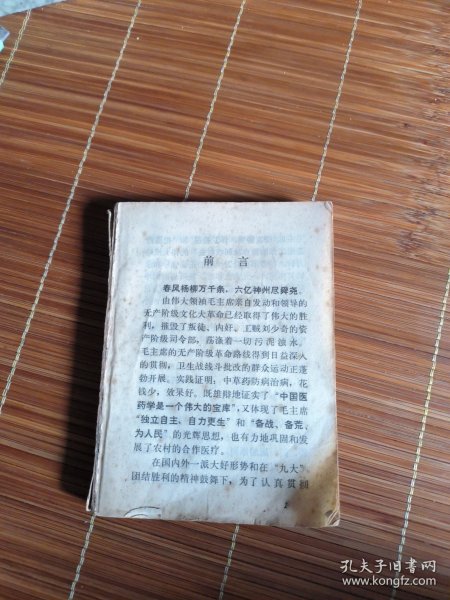 前言
春风杨柳万千条，六亿神州尽舜尧。
由伟大领袖毛主席亲自发动和领导的
无产阶级文化大革命已经取得了伟大的胜
利，摧毁了叛徒、内奸、工贼刘少奇的资
产阶级司令部，荡涤着一切污泥浊水。
毛主席的无产阶级革命路线得到日益深入
的贯彻，卫生战线斗批改的群众运动正蓬
勃开展。实践证明，中草药防病治病，花
钱少，效果好。既雄辩地证实了“中国医
药学是一个伟大的宝库”，又体现了毛主席
“独立自主、自力更生”和“备战、备荒、
为人民”的光辉思想，也有力地巩固和发
展了农村的合作医疗。
在国内外一派大好形势和在“九大”
团结胜利的精神鼓舞下，为了认真贯彻
孔夫子旧书网
www.kongfz.com